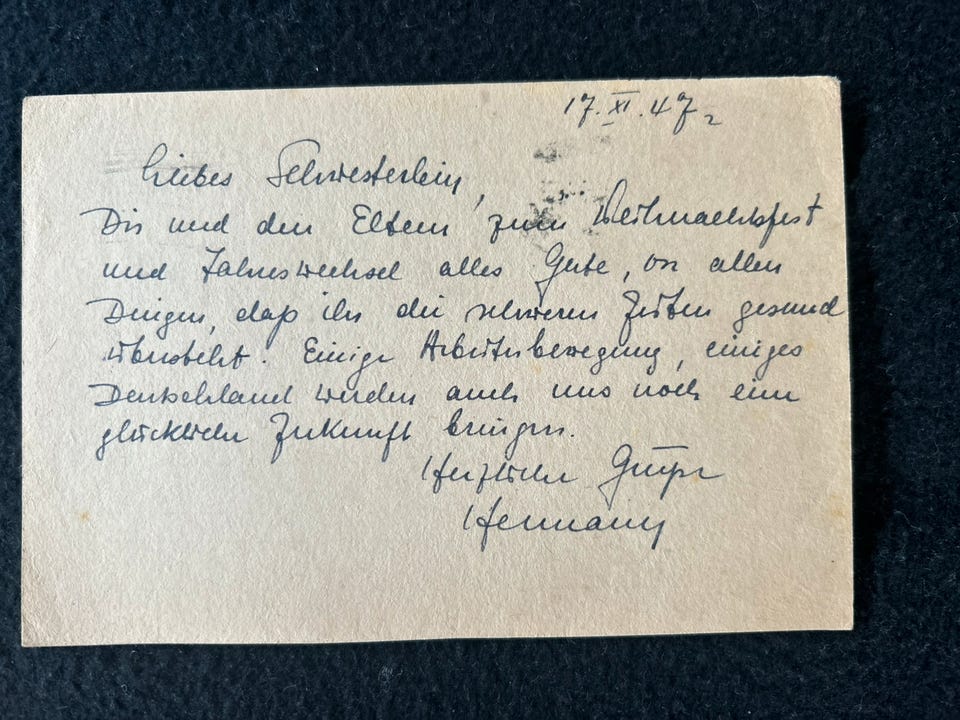 17. XI. 47
Liebes Schwesterlein,
Dir und den Eltern zum Weihnachtsfest
und Jahreswechsel alles Gute, vor allen
Dingen, daß ihr die schweren Zeiten gesund
übersteht. Einige Arbeiterbewegung, einiges
Deutschland werden auch uns noch eine
glückliche Zukunft bringen.
Herzliche Grüße
Hermann